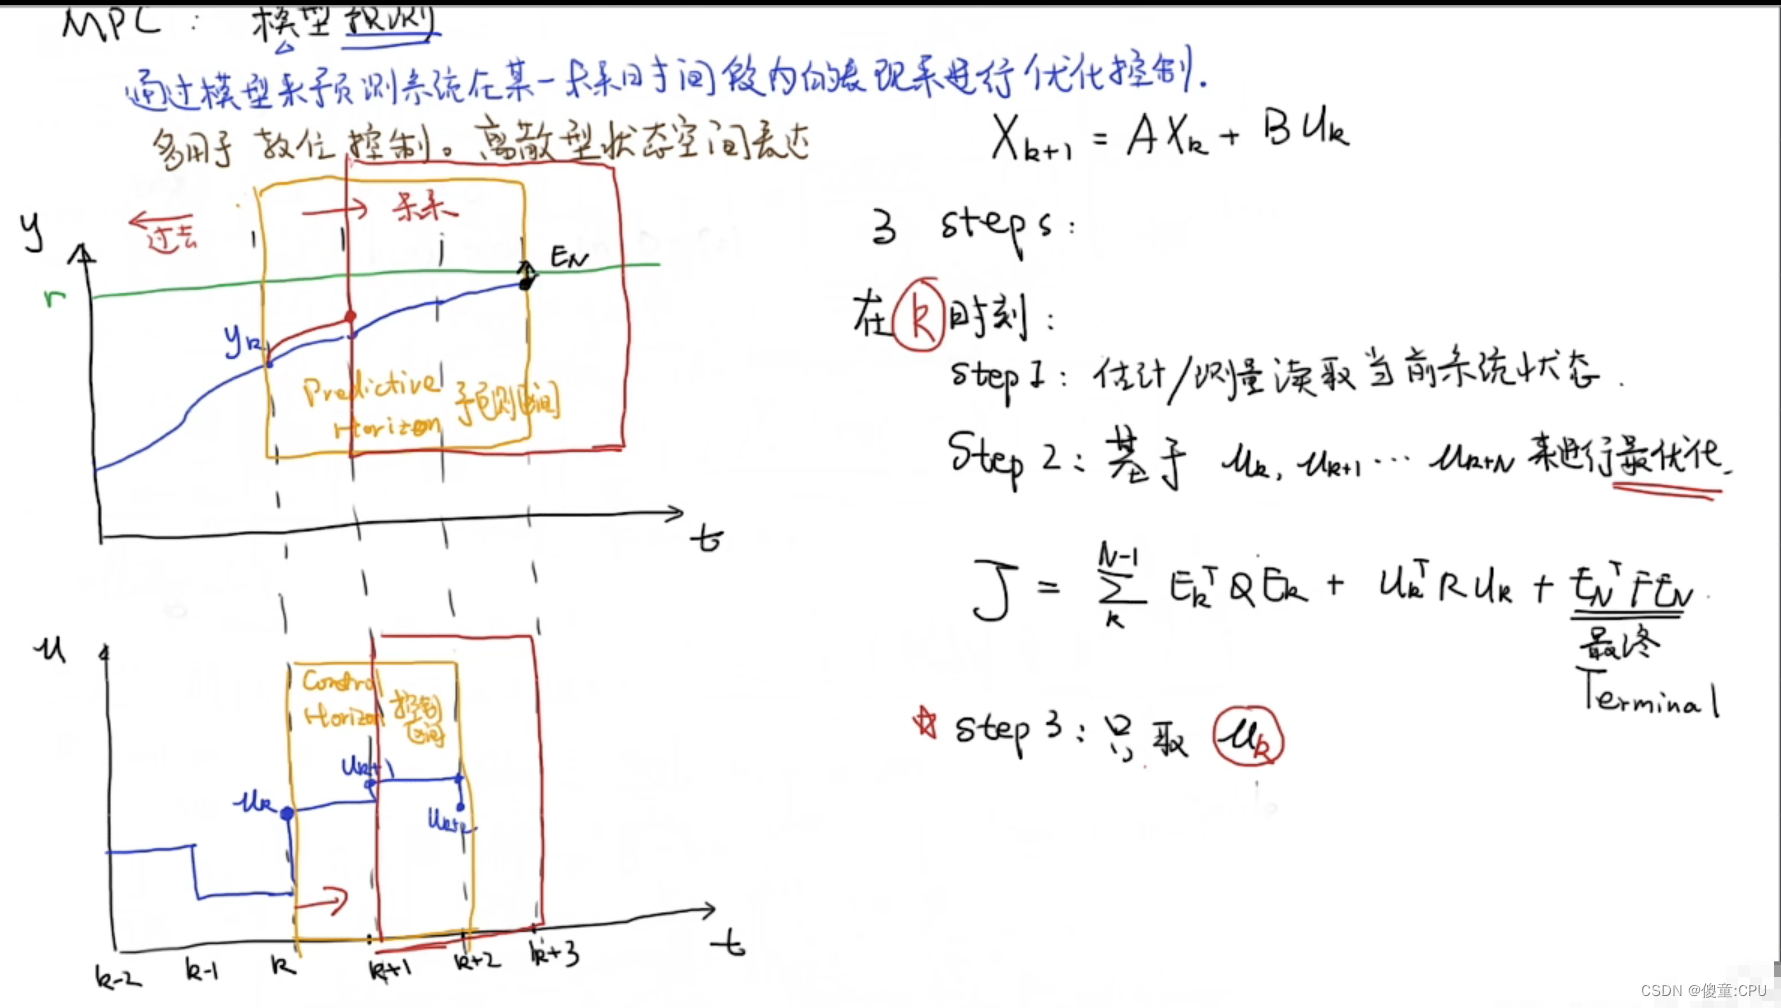 MPC : 模型预测
通过模型来预测系统在某一未来时间段内的表现来进行优化控制.
多用于 数位 控制。离散型状态空间表达
X_{k+1} = A X_k + B U_k
3 steps:
在 k 时刻:
step 1: 估计/测量读取当前系统状态.
Step 2: 基于 u_k, u_{k+1} ... u_{k+N} 来进行最优化.
J = \sum_k^{N-1} E_k^T Q E_k + U_k^T R U_k + E_N^T F E_N
最终
Terminal
☆ step 3: 只取 u_k
y
过去
未来
j
E_N
r
y_k
Predictive
Horizon
预测区间
t
u
Control
Horizon
控制
区间
u_k
u_{k+1}
u_{k+2}
k-2 k-1 k k+1 k+2 k+3
t
CSDN @傻童:CPU